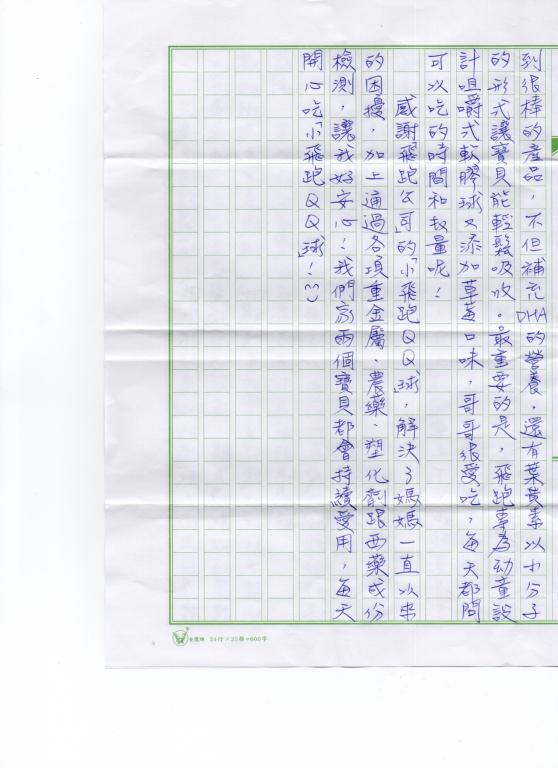 到很棒的產品，不但補充DHA的營養，還有葉黃素以小分子
的形式讓寶貝能輕鬆吸收。最重要的是，飛跑專為幼童設
計咀嚼式軟膠球又添加草莓口味，哥哥很愛吃，每天都問
可以吃的時間和数量呢！
感謝飛跑公司」的「小飛跑QQ球」，解決了媽媽一直以來
的困擾，加上通過各項重金屬、農藥、塑化劑跟西藥成份
檢測，讓我好安心！我們家兩個寶貝都會持續愛用，每天
開心吃「小飛跑QQ球」！
24行×25格=600字